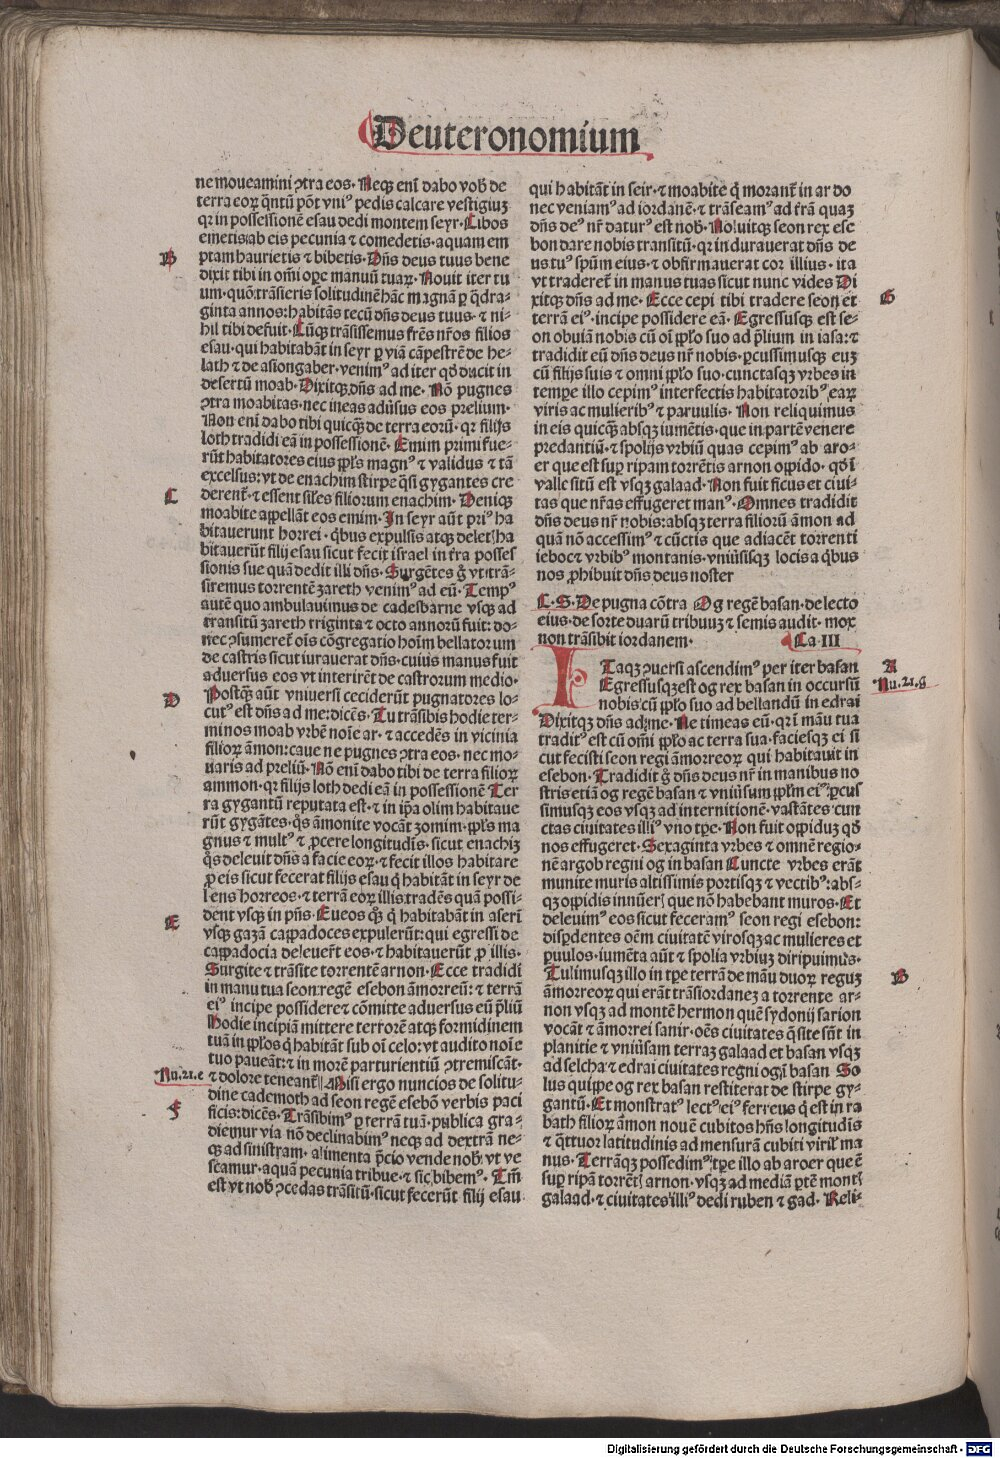 Deuteronomium
ne moueamini ꝯtra eos. Neqꝫ eni̅ dabo vob̅ de
terra eoꝝ q̅ntu̅ po̅t vniꝰ pedis calcare vestigiuꝫ
qꝛ in possessione̅ esau dedi montem seyr. Cibos
emetis ab eis pecunia ⁊ comedetis. aquam em
B
ptam haurietis ⁊ bibetis. Dn̅s deus tuus bene
dixit tibi in om̅i oꝑe manuu̅ tuaꝝ. Nouit iter tu
um. quo̅ tra̅sieris solitudine̅ hāc magna̅ ꝑ q̅dra-
ginta annos: habita̅s tecu̅ dn̅s deus tuus. ⁊ ni-
hil tibi defuit. Cu̅qꝫ tra̅sissemus fr̅es nr̅os filios
esau. qui habitaba̅t in seyr ꝑ via̅ ca̅pestre̅ de he-
lath ⁊ de asiongaber. venimꝰ ad iter qd̅ ducit in
desertu̅ moab. Dixitqꝫ dn̅s ad me. No̅ pugnes
ꝯtra moabitas. nec ineas adu̅sus eos prelium.
Non eni̅ dabo tibi quicq̅ꝫ de terra eoru̅. qꝛ filijs
loth tradidi ea̅ in possessione̅. Emim primi fue-
ru̅t habitatores eius ppl̅s magnꝰ ⁊ validus ⁊ ta̅
excelsus: vt de enachim stirpe q̅si gygantes cre
C
derent̅. ⁊ essent siles filiorum enachim. Deniqꝫ
moabite appella̅t eos emim. In seyr au̅t priꝰ ha
bitauerunt horrei. q̇bus expulsis atqꝫ delet̅ ha
bitaueru̅t filij esau sicut fecit israel in t̅ra posses
sionis sue qua̅ dedit illi dn̅s. Surge̅tes g̊ vt tra̅-
siremus torrente̅ zareth venimꝰ ad eu̅. Tempꝰ
aute̅ quo ambulauimus de cadesbarne vsqꝫ ad
transitu̅ zareth triginta ⁊ octo annoru̅ fuit: do-
nec ꝯsumeret̅ ois co̅gregatio hoi̅m bellatorum
de castris sicut iurauerat dn̅s. cuius manus fuit
aduersus eos vt interire̅t de castrorum medio.
D
Postq̅ꝫ au̅t vniuersi cecideru̅t pugnatores lo-
cutꝰ est dn̅s ad me: dice̅s. Tu tra̅sibis hodie ter-
minos moab vrbe̅ noi̅e ar. ⁊ accede̅s in vicinia
filioꝝ a̅mon: caue ne pugnes ꝯtra eos. nec mo-
uaris ad preliu̅. No̅ eni̅ dabo tibi de terra filioꝝ
ammon. qꝛ filijs loth dedi ea̅ in possessione̅ Ter
ra gygantu̅ reputata est. ⁊ in ip̅a olim habitaue
ru̅t gyga̅tes. q̊s a̅monite voca̅t zomim. ppl̅s ma
gnus ⁊ multꝰ ⁊ ꝓcere longitudi̅s. sicut enachiꝫ
q̊s deleuit dn̅s a facie eoꝝ. ⁊ fecit illos habitare
ꝓ eis sicut fecerat filijs esau q̇ habita̅t in seyr de
lens horreos. ⁊ terra̅ eoꝝ illis trade̅s qua̅ possi-
E
dent vsqꝫ in pn̅s. Eueos q̊ꝫ q̇ habitaba̅t in aseri̅
vsqꝫ gaza̅ cappadoces expuleru̅t: qui egressi de
cappadocia deleuer̅t eos. ⁊ habitaueru̅t ꝓ illis.
Surgite ⁊ tra̅site torrente̅ arnon. Ecce tradidi
in manu tua seon rege̅ esebon a̅morreu̅: ⁊ terra̅
eiꝰ incipe possidere ⁊ co̅mitte aduersus eu̅ p̅liu̅
Hodie incipia̅ mittere terrore̅ atqꝫ formidinem
tua̅ in ppl̅os q̇ habita̅t sub oi̅ celo: vt audito noi̅e
tuo pauea̅t: ⁊ in more̅ parturientiu̅ ꝯtremisca̅t.
Nu.21.e
⁊ dolore teneant̅. Misi ergo nuncios de solitu-
dine cademoth ad seon rege̅ esebo̅ verbis paci
F
ficis: dice̅s. Tra̅sibimꝰ ꝑ terra̅ tua̅. publica gra-
diemur via no̅ declinabimꝰ neqꝫ ad dextra̅ ne-
qꝫ ad sinistram. alimenta p̅cio vende nob̅ vt ve
scamur. aqua̅ pecunia tribue. ⁊ sic bibemꝰ. Tm̅
est vt nob̅ ꝯcedas tra̅situ̅. sicut feceru̅t filij esau
qui habita̅t in seir. ⁊ moabite q̇ morant̅ in ar do
nec veniamꝰ ad iordane̅. ⁊ tra̅seamꝰ ad t̅ra̅ quaꝫ
dn̅s deꝰ nr̅ daturꝰ est nob̅. Noluitqꝫ seon rex ese
bon dare nobis transitu̅. qꝛ indurauerat dn̅s de
us tuꝰ spu̅m eius. ⁊ obfirmauerat cor illius. ita
vt traderet̅ in manus tuas sicut nunc vides Di
G
xitqꝫ dn̅s ad me. Ecce cepi tibi tradere seon et
terra̅ eiꝰ. incipe possidere ea̅. Egressusqꝫ est se-
on obuia̅ nobis cu̅ oi̅ pplo̅ suo ad p̅lium in iasa: ⁊
tradidit eu̅ dn̅s deus nr̅ nobis. ꝑcussimusqꝫ euꝫ
cu̅ filijs suis ⁊ omni pplo̅ suo. cunctasqꝫ vrbes in
temꝑe illo cepimꝰ interfectis habitatoribꝰ eaꝝ
viris ac mulieribꝰ ⁊ paruulis. Non reliquimus
in eis quicq̅ꝫ absqꝫ iume̅tis. que in parte̅ venere
predantiu̅. ⁊ spolijs vrbiu̅ quas cepimꝰ ab aro-
er que est suꝑ ripam torre̅tis arnon oppido. qd̅ i̅
valle situ̅ est vsqꝫ galaad. Non fuit ficus et ciui-
tas que nr̅as effugeret manꝰ. Omnes tradidit
dn̅s deus nr̅ nobis: absqꝫ terra filioru̅ a̅mon ad
qua̅ no̅ accessimꝰ ⁊ cu̅ctis que adiace̅t torrenti
ieboc ⁊ vrbibꝰ montanis. vniu̅sisqꝫ locis a q̇bus
nos ꝓhibuit dn̅s deus noster
C.S. De pugna co̅tra Og rege̅ basan. de lecto
eius. de sorte duaru̅ tribuuꝫ ⁊ semis audit. mox
non tra̅sibit iordanem. Ca III
A
Itaqꝫ ꝯuersi ascendimꝰ per iter basan
Nu.21.g
Egressusqꝫ est og rex basan in occursu̅
nobis cu̅ pplo̅ suo ad bellandu̅ in edrai
Dixitqꝫ dn̅s ad me. Ne timeas eu̅. qꝛ i̅ ma̅u tua
traditꝰ est cu̅ om̅i pplo̅ ac terra sua. faciesqꝫ ei si
cut fecisti seon regi a̅morreoꝝ qui habitauit in
esebon. Tradidit g̊ dn̅s deus nr̅ in manibus no
stris etia̅ og rege̅ basan ⁊ vniu̅sum ppl̅m eiꝰ ꝑcus
simusqꝫ eos vsqꝫ ad internitione̅. vasta̅tes cun
ctas ciuitates illiꝰ vno tꝑe. Non fuit oppiduꝫ qd̅
nos effugeret. Sexaginta vrbes ⁊ omne̅ regio-
ne̅ argob regni og in basan Cuncte vrbes era̅t
munite muris altissimis portisqꝫ ⁊ vectibꝰ: abs-
qꝫ oppidis innu̅er̅ que no̅ habebant muros. Et
deleuimꝰ eos sicut feceramꝰ seon regi esebon:
disꝑdentes oe̅m ciuitate̅ virosqꝫ ac mulieres et
ꝑuulos. iume̅ta au̅t ⁊ spolia vrbiuꝫ diripuimꝰ.
B
Tulimusqꝫ illo in tꝑe terra̅ de ma̅u duoꝝ reguꝫ
a̅morreoꝝ qui era̅t tra̅s iordaneꝫ a torrente ar-
non vsqꝫ ad monte̅ hermon que̅ sydonij sarion
voca̅t ⁊ a̅morrei sanir. oe̅s ciuitates q̅ site sn̅t in
planitie ⁊ vniu̅sam terraꝫ galaad et basan vsqꝫ
ad selcha ⁊ edrai ciuitates regni og i̅ basan So
lus quippe og rex basan restiterat de stirpe gy-
gantu̅. Et monstratꝰ lectꝰ eiꝰ ferreus q̇ est in ra
bath filioꝝ a̅mon noue̅ cubitos hn̅s longitudis
⁊ q̅ttuor latitudinis ad mensura̅ cubiti viril̅ ma
nus. Terra̅qꝫ possedimꝰ tꝑe illo ab aroer que e̅
suꝑ ripa̅ torre̅t̅ arnon. vsqꝫ ad media̅ ꝑte̅ mont̅
galaad. ⁊ ciuitates illiꝰ dedi ruben ⁊ gad. Reli-
Digitalisierung gefördert durch die Deutsche Forschungsgemeinschaft - DFG